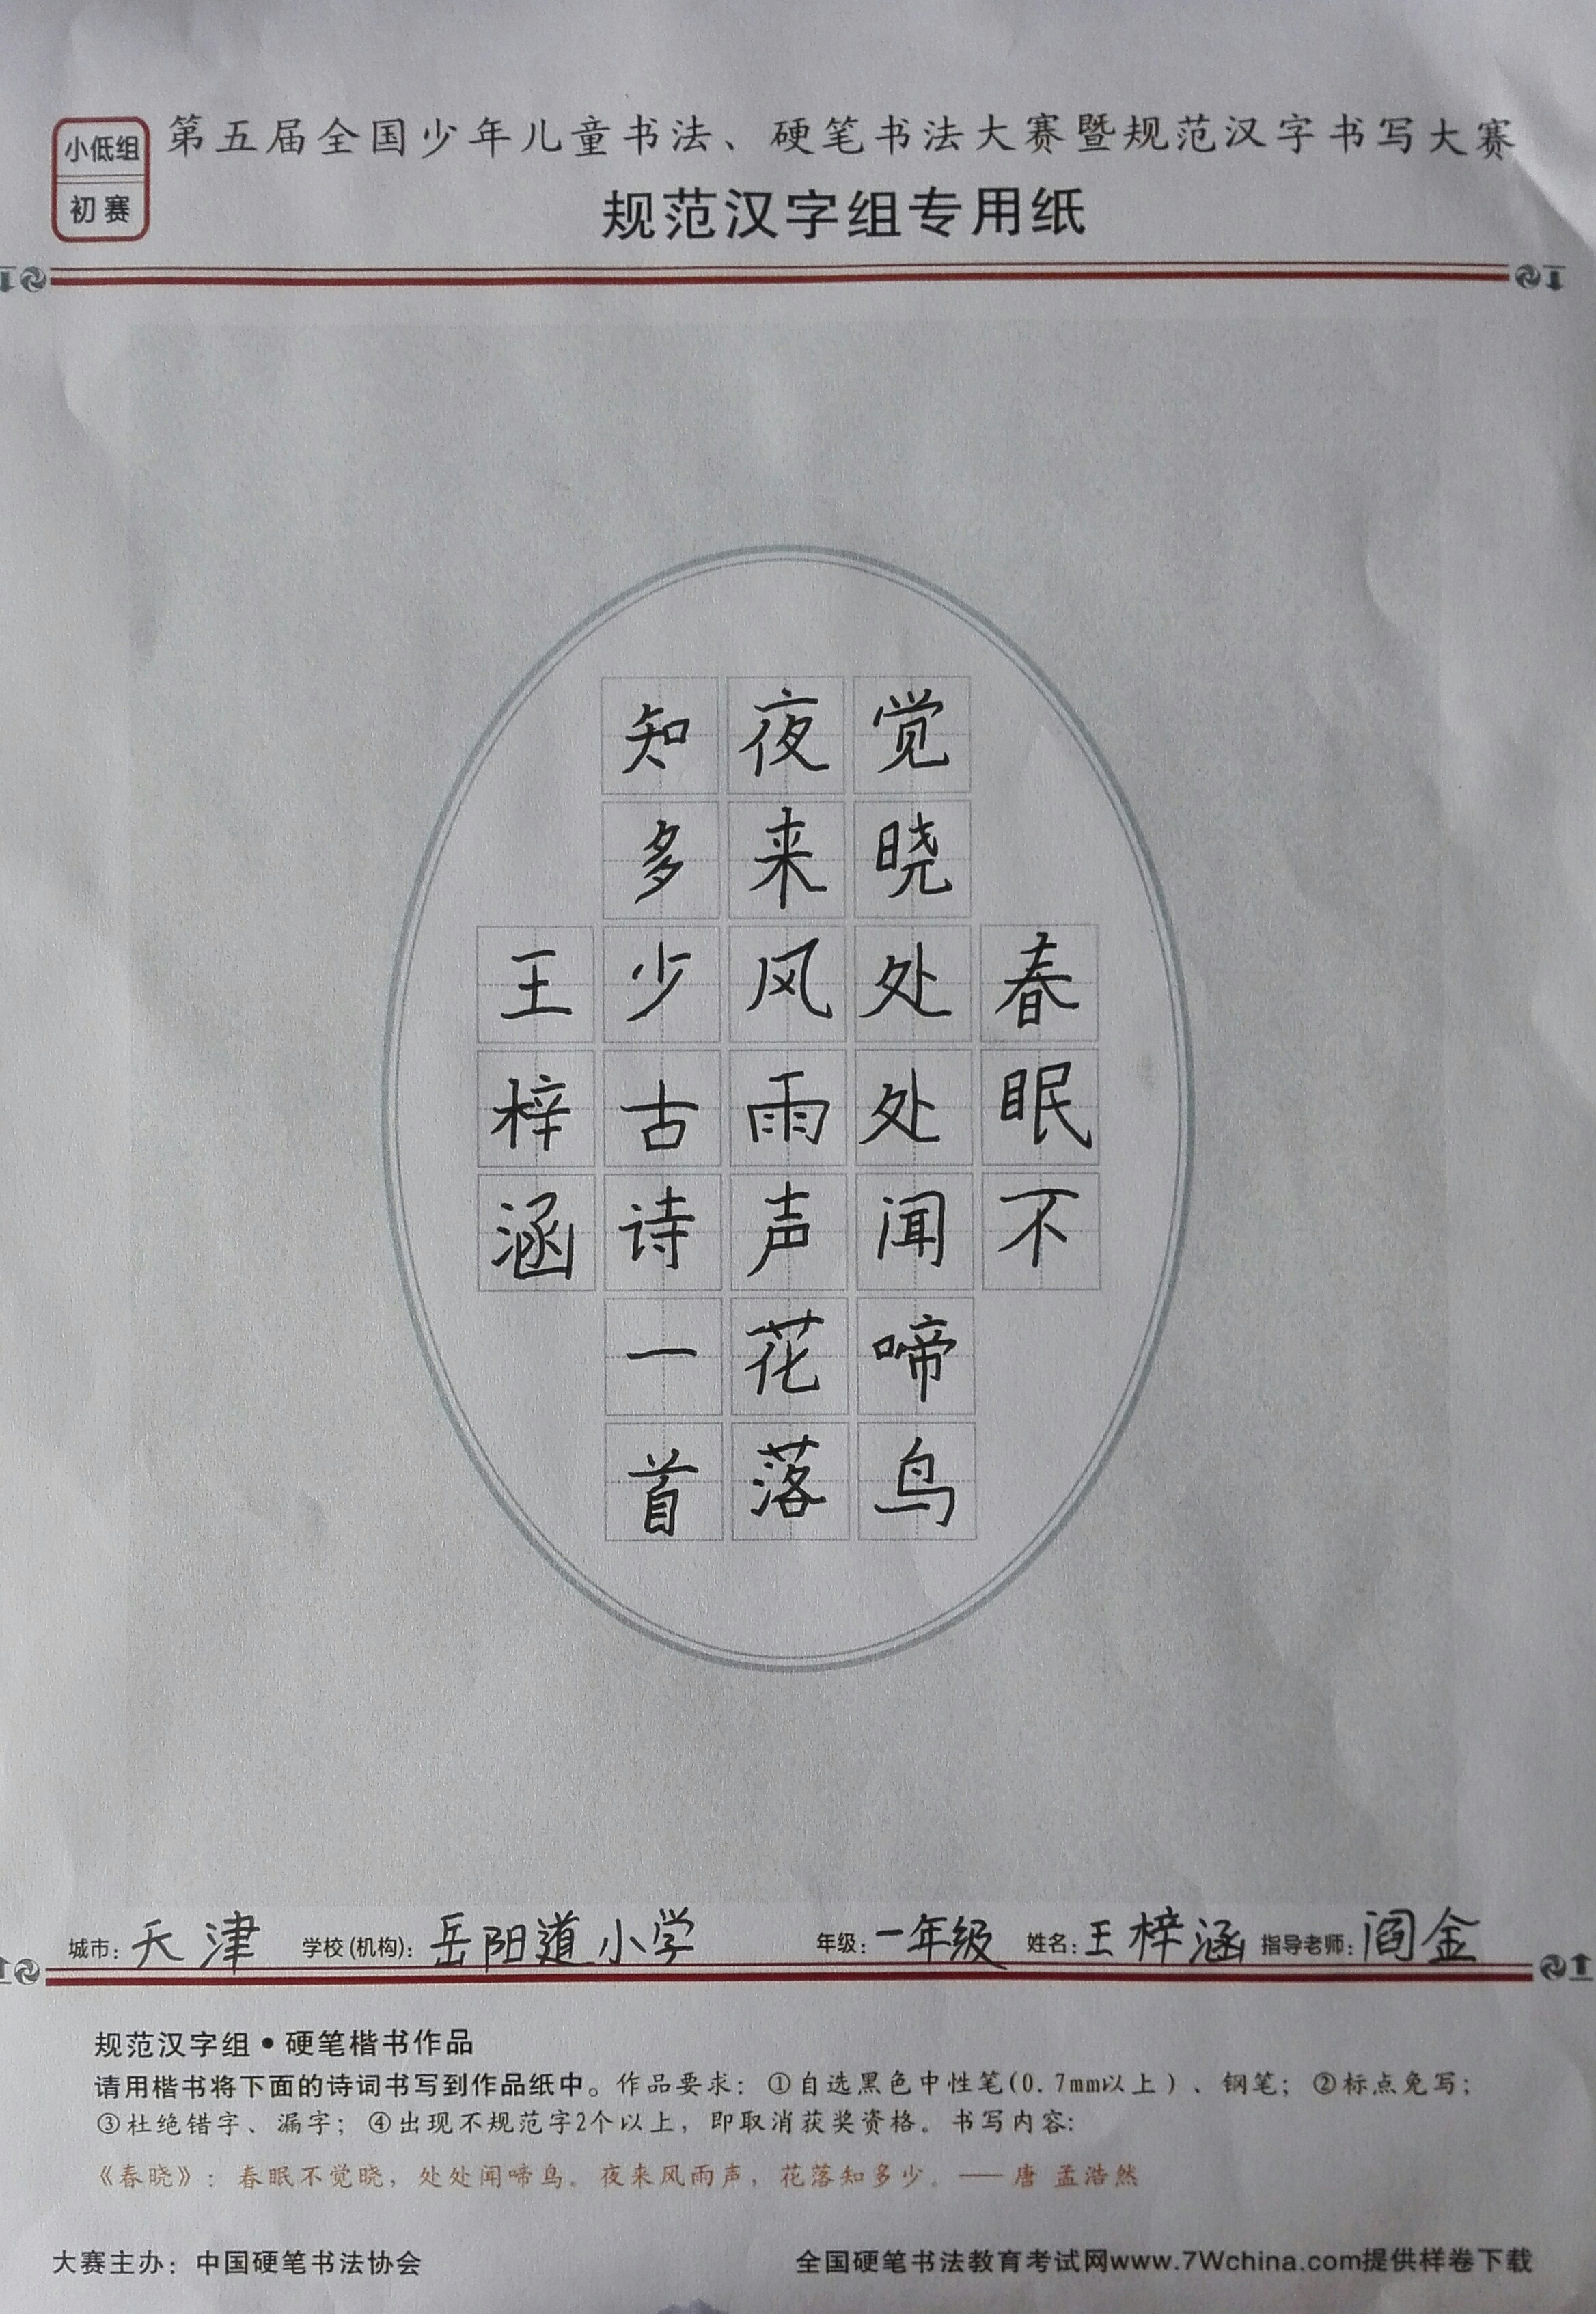 小低组
初赛
第五届全国少年儿童书法、硬笔书法大赛暨规范汉字书写大赛
规范汉字组专用纸
春眠不
觉晓处处闻啼鸟
夜来风雨声花落
知多少古诗一首
王梓涵
城市：天津 学校(机构)：岳阳道小学 年级：一年级 姓名：王梓涵 指导老师：阎金
规范汉字组•硬笔楷书作品
请用楷书将下面的诗词书写到作品纸中。作品要求：①自选黑色中性笔(0.7mm以上)、钢笔；②标点免写；
③杜绝错字、漏字；④出现不规范字2个以上，即取消获奖资格。书写内容：
《春晓》：春眠不觉晓，处处闻啼鸟。夜来风雨声，花落知多少。——唐 孟浩然
大赛主办：中国硬笔书法协会 全国硬笔书法教育考试网www.7Wchina.com提供样卷下载